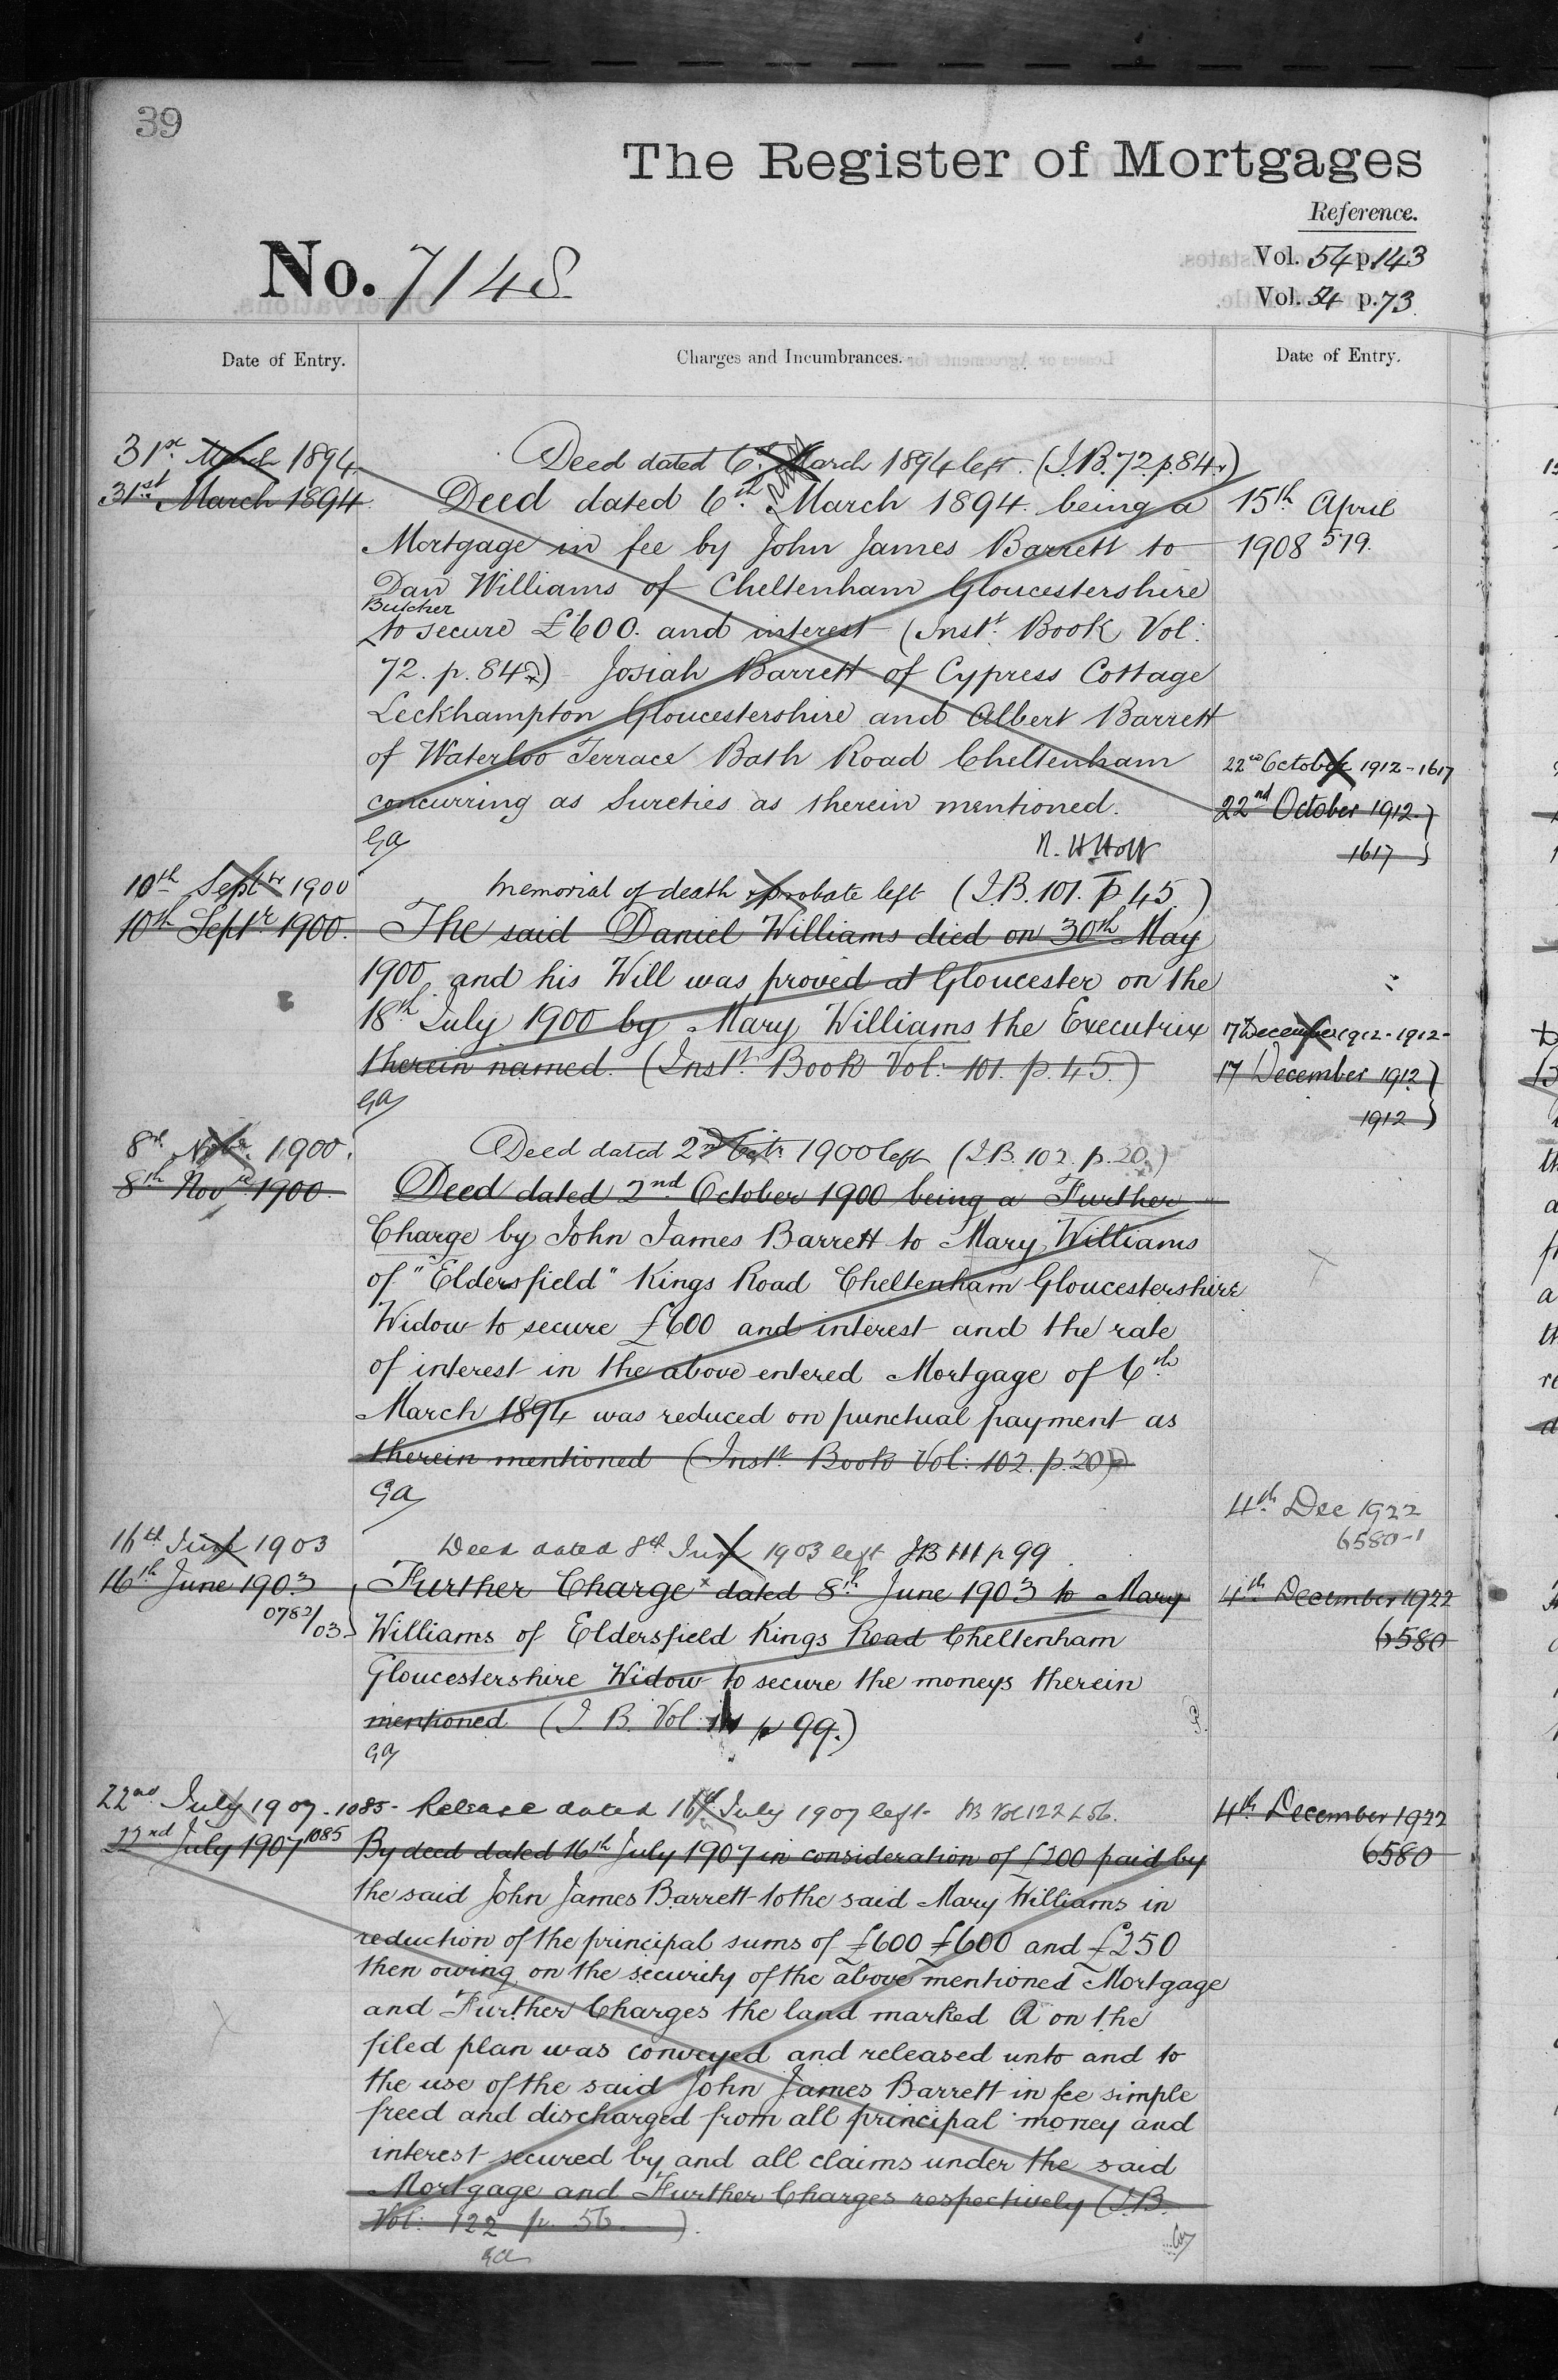 39
The Register of Mortgages
Reference.
No. 7148
Vol. 54 p. 143
Vol. 54 p. 73.
Date of Entry.
Charges and Incumbrances.
Date of Entry.
31st March 1894
Deed dated 6th March 1894 left. (I.B. 72 p. 84.)
31st March 1894
Deed dated 6th March 1894. being a
15th April
Mortgage in fee by John James Barrett to
1908 579.
Dan Williams of Cheltenham Gloucestershire
Butcher
to secure £600. and interest (Inst: Book Vol:
72. p. 84) Josiah Barrett of Cypress Cottage
Leckhampton Gloucestershire and Albert Barrett
of Waterloo Terrace Bath Road Cheltenham
22nd October 1912 - 1617
concurring as Sureties as therein mentioned.
22nd October 1912.
1617
GA
N. H. Holt
10th Septr 1900
Memorial of death & probate left (I.B. 101. p. 45.)
10th Septr 1900.
The said Daniel Williams died on 30th May
1900 and his Will was proved at Gloucester on the
18th July 1900 by Mary Williams the Executrix
17 December 1912 - 1912 -
therein named. (Inst: Book Vol: 101. p. 45.)
17 December 1912
1912
GA
8th Novr. 1900.
Deed dated 2nd Octr 1900 left (I.B. 102. p. 20)
8th Novr 1900.
Deed dated 2nd October 1900 being a Further
Charge by John James Barrett to Mary Williams
of "Eldersfield" Kings Road Cheltenham Gloucestershire
Widow to secure £600 and interest and the rate
of interest in the above entered Mortgage of 6th
March 1894 was reduced on punctual payment as
therein mentioned (Inst: Book Vol: 102. p. 20)
GA
4th Dec 1922
6580-1
16th June 1903
Deed dated 8th June 1903 left IB 111 p 99
16th June 1903
0782/03
Further Charge x dated 8th June 1903 to Mary
4th December 1922
6580
Williams of Eldersfield Kings Road Cheltenham
Gloucestershire Widow to secure the moneys therein
mentioned (I. B. Vol. 111 p 99.)
GA
22nd July 1907 - 1085 -
Release dated 16th July 1907 left - IB Vol 122 p 56.
4th December 1922
6580
22nd July 1907 1085
By deed dated 16th July 1907 in consideration of £200 paid by
the said John James Barrett to the said Mary Williams in
reduction of the principal sums of £600 £600 and £250
then owing on the security of the above mentioned Mortgage
and Further Charges the land marked A on the
filed plan was conveyed and released unto and to
the use of the said John James Barrett in fee simple
freed and discharged from all principal money and
interest secured by and all claims under the said
Mortgage and Further Charges respectively (I.B.
Vol: 122 p. 56.)
GA